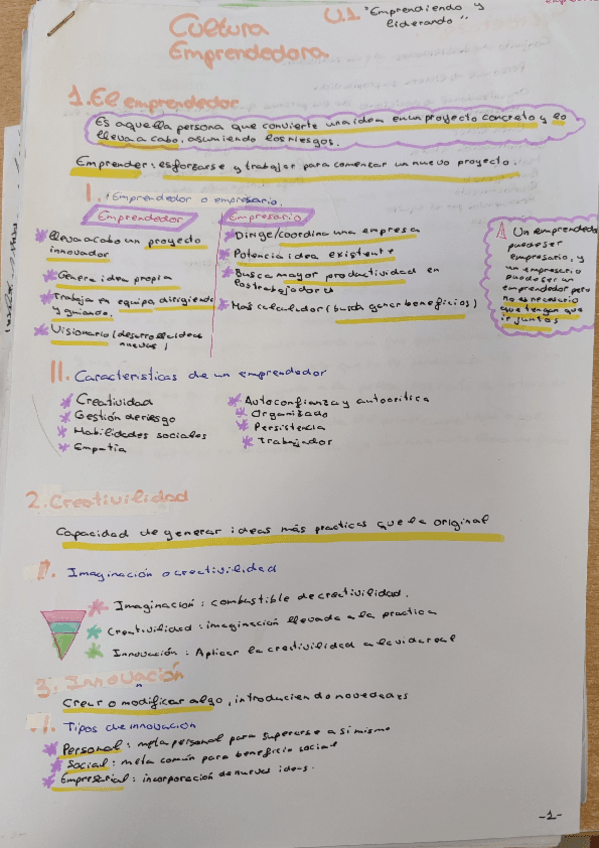 Cultura
Emprendedora
U.1 "Emprendiendo y
liderando"
1. El emprendedor
Es aquella persona que convierte una idea en un proyecto concreto y lo
lleva a cabo, asumiendo los riesgos.
Emprender: esforzarse y trabajar para comenzar un nuevo proyecto.
I. Emprendedor o empresario.
Emprendedor
* lleva a cabo un proyecto
innovador
* Genera idea propia
* Trabaja en equipo, dirigiendo
y guiando.
* Visionario (desarrolla ideas
nuevas)
Empresario
* Dirige/coordina una empresa
* Potencia idea existente
* Busca mayor productividad en
los trabajadores
* Más calculador (busca ganar beneficios)
Un emprendedo
puede ser
empresario, y
un empresario
puede ser un
emprendedor pero
no es necesario
que tengan que
ir juntos
II. Características de un emprendedor
* Creatividad
* Gestión de riesgo
* Habilidades sociales
* Empatía
* Autoconfianza y autocrítica
* Organizado
* Persistencia
* Trabajador
2. Creativilidad
Capacidad de generar ideas más practicas que la original
I. Imaginación o creativilidad
* Imaginación: combustible de creativilidad.
* Creativilidad: imaginación llevada a la practica
* Innovación: Aplicar la creativilidad a la vida real
3. Innovación
Crear o modificar algo, introduciendo novedades
I. Tipos de innovación
* Personal: meta personal para superarse a si mismo
* Social: meta común para beneficio social
* Empresarial: incorporación de nuevas ideas.
-1-